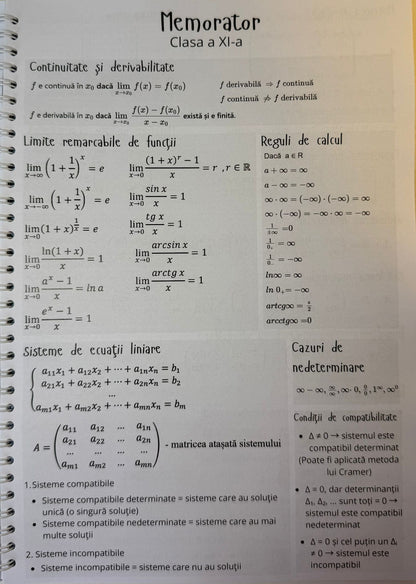 Memorator
Clasa a XI-a
Continuitate și derivabilitate
f e continuă în x₀ dacă lim x→x₀ f(x) = f(x₀)
f derivabilă ⇒ f continuă
f continuă ⇏ f derivabilă
f e derivabilă în x₀ dacă lim x→x₀ (f(x) − f(x₀))/(x − x₀) există și e finită.
Limite remarcabile de funcții
lim x→∞ (1 + 1/x)^x = e
lim x→−∞ (1 + 1/x)^x = e
lim x→0 (1 + x)^(1/x) = e
lim x→0 ln(1 + x)/x = 1
lim x→0 (a^x − 1)/x = ln a
lim x→0 (e^x − 1)/x = 1
lim x→0 ((1 + x)^r − 1)/x = r , r ∈ ℝ
lim x→0 sin x/x = 1
lim x→0 tg x/x = 1
lim x→0 arcsin x/x = 1
lim x→0 arctg x/x = 1
Reguli de calcul
Dacă a ∈ R
a + ∞ = ∞
a − ∞ = −∞
∞ · ∞ = (−∞) · (−∞) = ∞
∞ · (−∞) = −∞ · ∞ = −∞
1/±∞ =0
1/0₊ = ∞
1/0₋ = −∞
ln∞ = ∞
ln 0₊= −∞
artcg∞ = π/2
arcctg∞ =0
Sisteme de ecuații liniare
a₁₁x₁ + a₁₂x₂ + ⋯ + a₁ₙxₙ = b₁
a₂₁x₁ + a₂₂x₂ + ⋯ + a₂ₙxₙ = b₂
...
aₘ₁x₁ + aₘ₂x₂ + ⋯ + aₘₙxₙ = bₘ
a₁₁ a₁₂ ... a₁ₙ
A = a₂₁ a₂₂ ... a₂ₙ - matricea atașată sistemului
... ... ... ...
aₘ₁ aₘ₂ ... aₘₙ
1.Sisteme compatibile
• Sisteme compatibile determinate = sisteme care au soluție
unică (o singură soluție)
• Sisteme compatibile nedeterminate = sisteme care au mai
multe soluții
2. Sisteme incompatibile
• Sisteme incompatibile = sisteme care nu au soluții
Cazuri de
nedeterminare
∞ − ∞, ∞/∞, ∞· 0, 0/0, 1^∞, ∞⁰
Condiții de compatibilitate
• Δ ≠ 0 → sistemul este
compatibil determinat
(Poate fi aplicată metoda
lui Cramer)
• Δ = 0, dar determinanții
Δ₁, Δ₂, ... sunt toți = 0 →
sistemul este compatibil
nedeterminat
• Δ = 0 și cel puțin un Δᵢ
≠ 0 → sistemul este
incompatibil